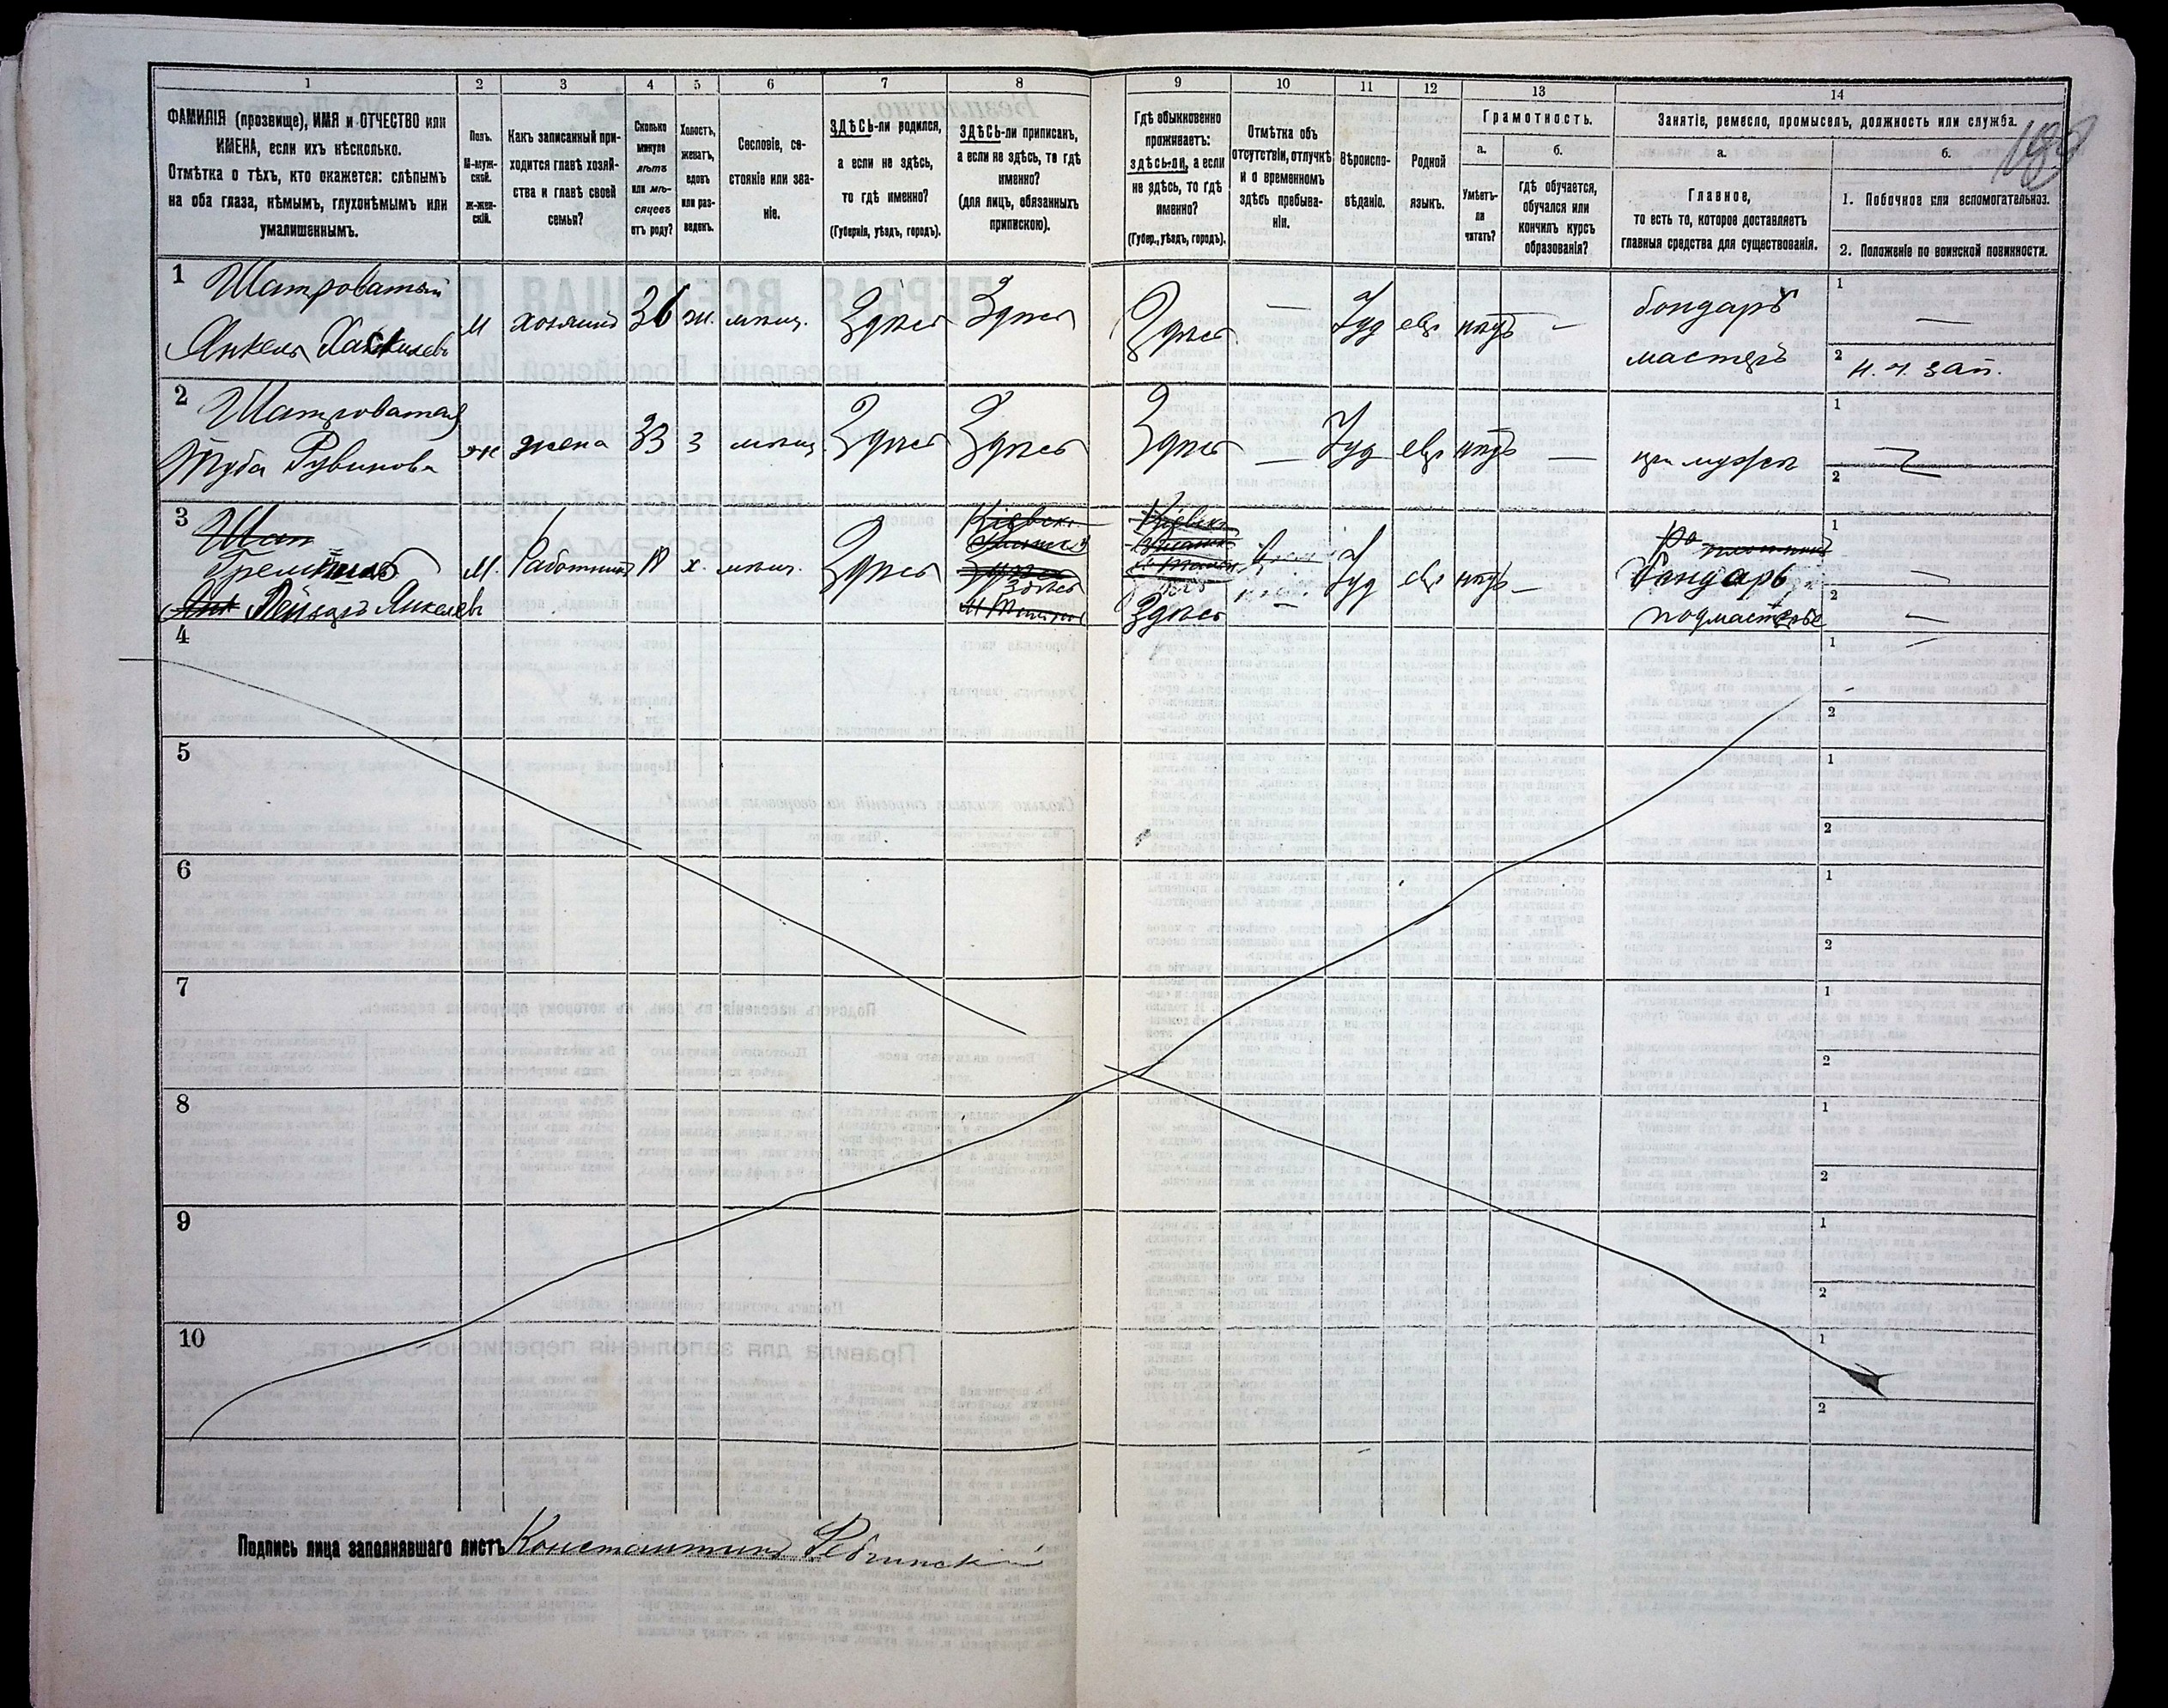 1 2 3 4 5 6 7 8 9 10 11 12 13 14
ФАМИЛІЯ (прозвище), ИМЯ и ОТЧЕСТВО или ИМЕНА, если ихъ нѣсколько.
Отмѣтка о тѣхъ, кто окажется: слѣпымъ на оба глаза, нѣмымъ, глухонѣмымъ или умалишеннымъ.
Полъ.
М-мужской.
ж-женскій.
Какъ записанный приходится главѣ хозяйства и главѣ своей семьи?
Сколько минуло лѣтъ или мѣсяцевъ отъ роду?
Холостъ, женатъ, вдовъ или разведенъ.
Сословіе, состояніе или званіе.
ЗДѢСЬ-ли родился, а если не здѣсь, то гдѣ именно?
(Губернія, уѣздъ, городъ).
ЗДѢСЬ-ли приписанъ, а если не здѣсь, то гдѣ именно?
(для лицъ, обязанныхъ припискою).
Гдѣ обыкновенно проживаетъ: здѣсь-ли, а если не здѣсь, то гдѣ именно?
(Губер., уѣздъ, городъ).
Отмѣтка объ отсутствіи, отлучкѣ и о временномъ здѣсь пребываніи.
Вѣроисповѣданіе.
Родной языкъ.
Грамотность.
а.
Умѣетъ-ли читать?
б.
гдѣ обучается, обучался или кончилъ курсъ образованія?
Занятіе, ремесло, промыселъ, должность или служба.
а.
Главное,
то есть то, которое доставляетъ главныя средства для существованія.
б.
1. Побочное или вспомогательное.
2. Положеніе по воинской повинности.
1 Шатроватый
Янкель
М хозяинъ 36 ж. мѣщ. Здѣсь Здѣсь Здѣсь — Іуд евр нѣтъ — бондарь мастеръ
1 —
2 н. ч. зап.
2 Шатроватая
Рувинова
ж жена 33 з мѣщ. Здѣсь Здѣсь Здѣсь — Іуд евр нѣтъ — при мужѣ
1
2
3
Янкелевъ
М. Работникъ 18 х. мѣщ. Здѣсь Здѣсь Здѣсь Іуд евр нѣтъ — бондарь подмастерье
1 —
2 —
4 1 2
5 1 2
6 1 2
7 1 2
8 1 2
9 1 2
10 1 2
Подпись лица заполнявшаго листъ Константинъ